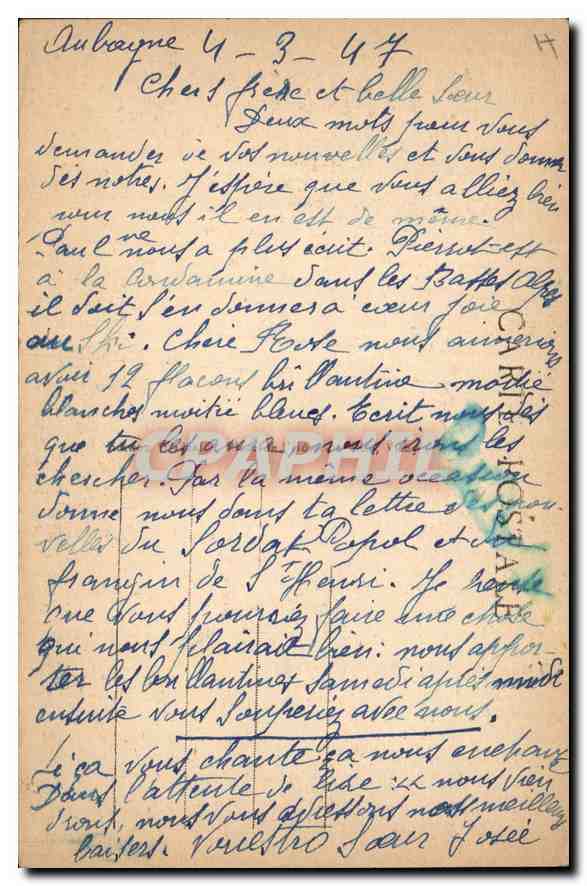 Aubagne 4-3-47
Chers frère et belle sœur
Deux mots pour vous
demander de vos nouvelles et vous donner
des notres. J'espère que vous alliez bien
pour nous il en est de même.
Paul ne nous a plus écrit. Pierrot est
à la Condamine dans les Basses Alpes
il doit s'en donner à cœur joie
au ski. Chère Rose nous aimerions
avoir 12 flacons brillantine moitié
blanches moitié bleues. Ecrit nous dès
que tu les aura, nous irons les
chercher. Par la même occasion
donne nous dans ta lettre des nou-
velles du Soldat Popol et du
frangin de St Henri. Je pense
que vous pourriez faire une chose
qui nous plairait bien: nous appor-
ter les brillantines samedi après midi
ensuite vous souperiez avec nous.
Si ça vous chante ça nous enchante
Dans l'attente de lire nous vien
drons, nous vous adressons nos meilleurs
baisers. Vouestro Sœur Josée
CARTE POSTALE
CPAPHIL